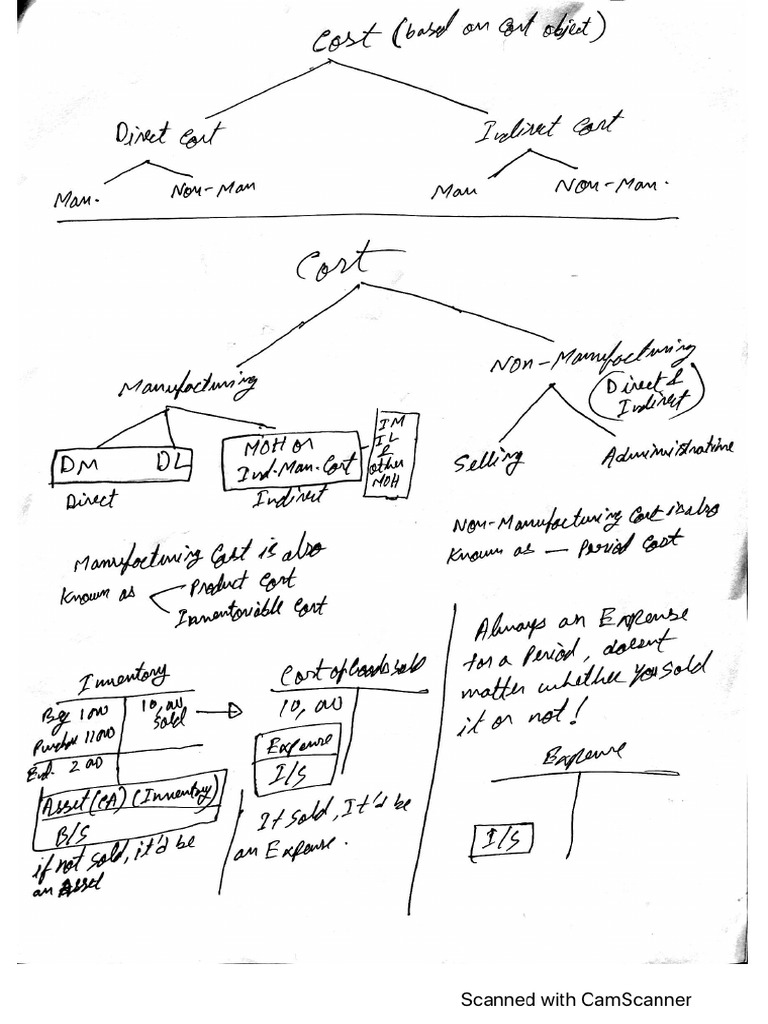 Cost (based on Cost object)
Direct Cost
Indirect Cost
Man.
Non-Man
Man
Non-Man.
Cost
Manufacturing
Non-Manufacturing
Direct &
Indirect
DM DL
Direct
MOH or
Ind. Man. Cost
Indirect
IM
IL
&
other
MOH
Selling
Administrative
Manufacturing Cost is also
Known as
Product Cost
Inventoriable Cost
Non-Manufacturing Cost is also
Known as — Period Cost
Inventory
Beg 1000
Purchase 11000
End. 2000
10,000
Sold
Asset (CA) (Inventory)
B/S
if not sold, it'd be
an Asset
Cost of Goods Sold
10,000
Expense
I/S
If Sold, It'd be
an Expense.
Always an Expense
for a Period, doesnt
matter whether you sold
it or not!
Expense
I/S
Scanned with CamScanner